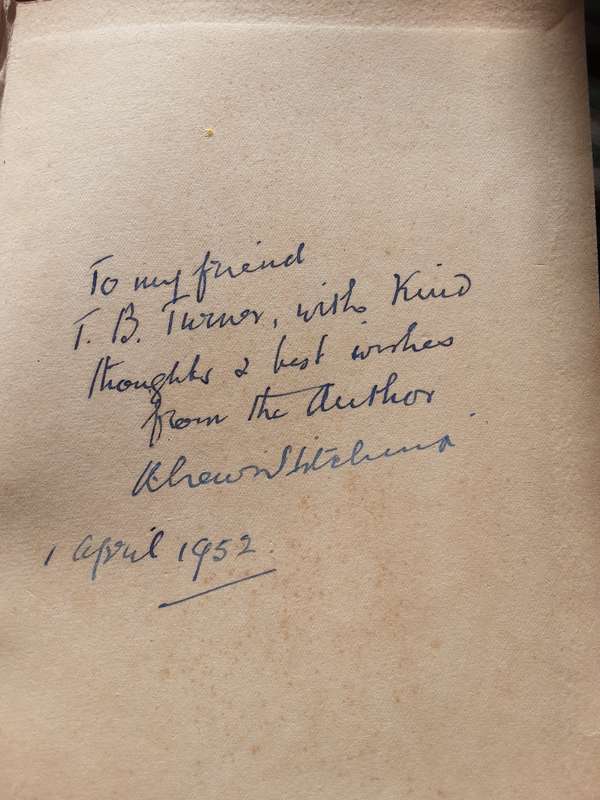 To my friend
T. B. Turner, with Kind
thoughts & best wishes
from the Author
1 April 1952.